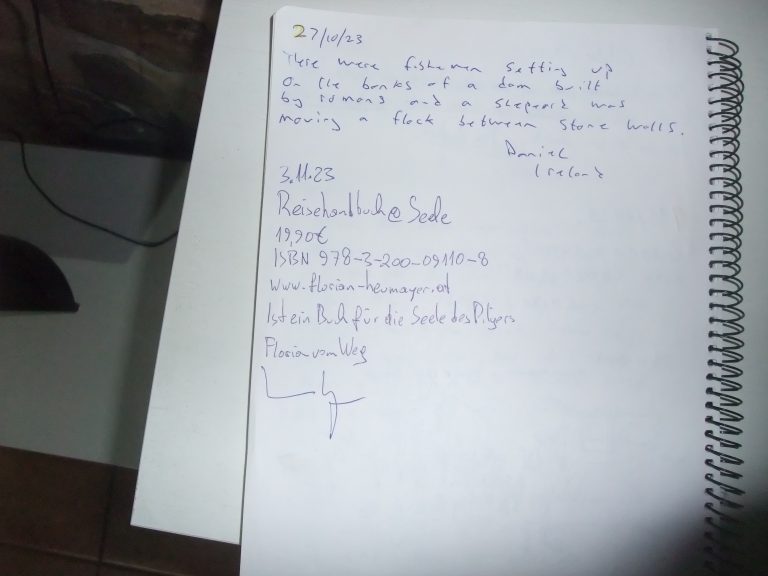 27/10/23
There were fishermen setting up
on the banks of a dam built
by romans and a shepard was
moving a flock between stone walls.
Daniel
Ireland
3.11.23
Reisehandbuch@Seele
19,90€
ISBN 978-3-200-09110-8
www.florian-heumayer.at
Ist ein Buch für die Seele des Pilgers
Florian vom Weg